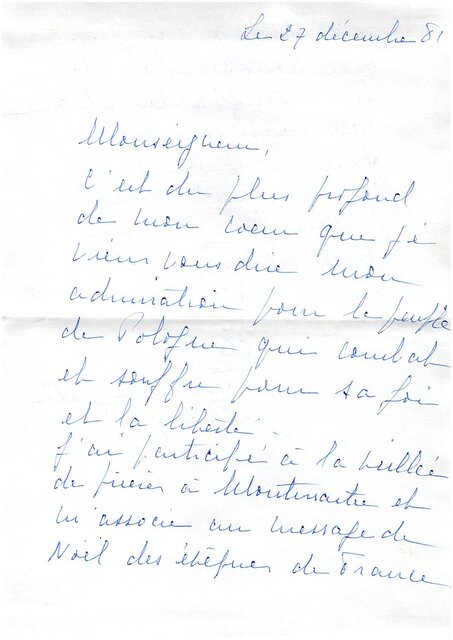 Le 27 décembre 81
Monseigneur,
C'est du plus profond
de mon coeur que je
viens vous dire mon
admiration pour le peuple
de Pologne qui combat
et souffre pour sa foi
et la liberté.
J'ai participé à la veillée
de prières à Montmartre et
m'associe au message de
Noël des évêques de France